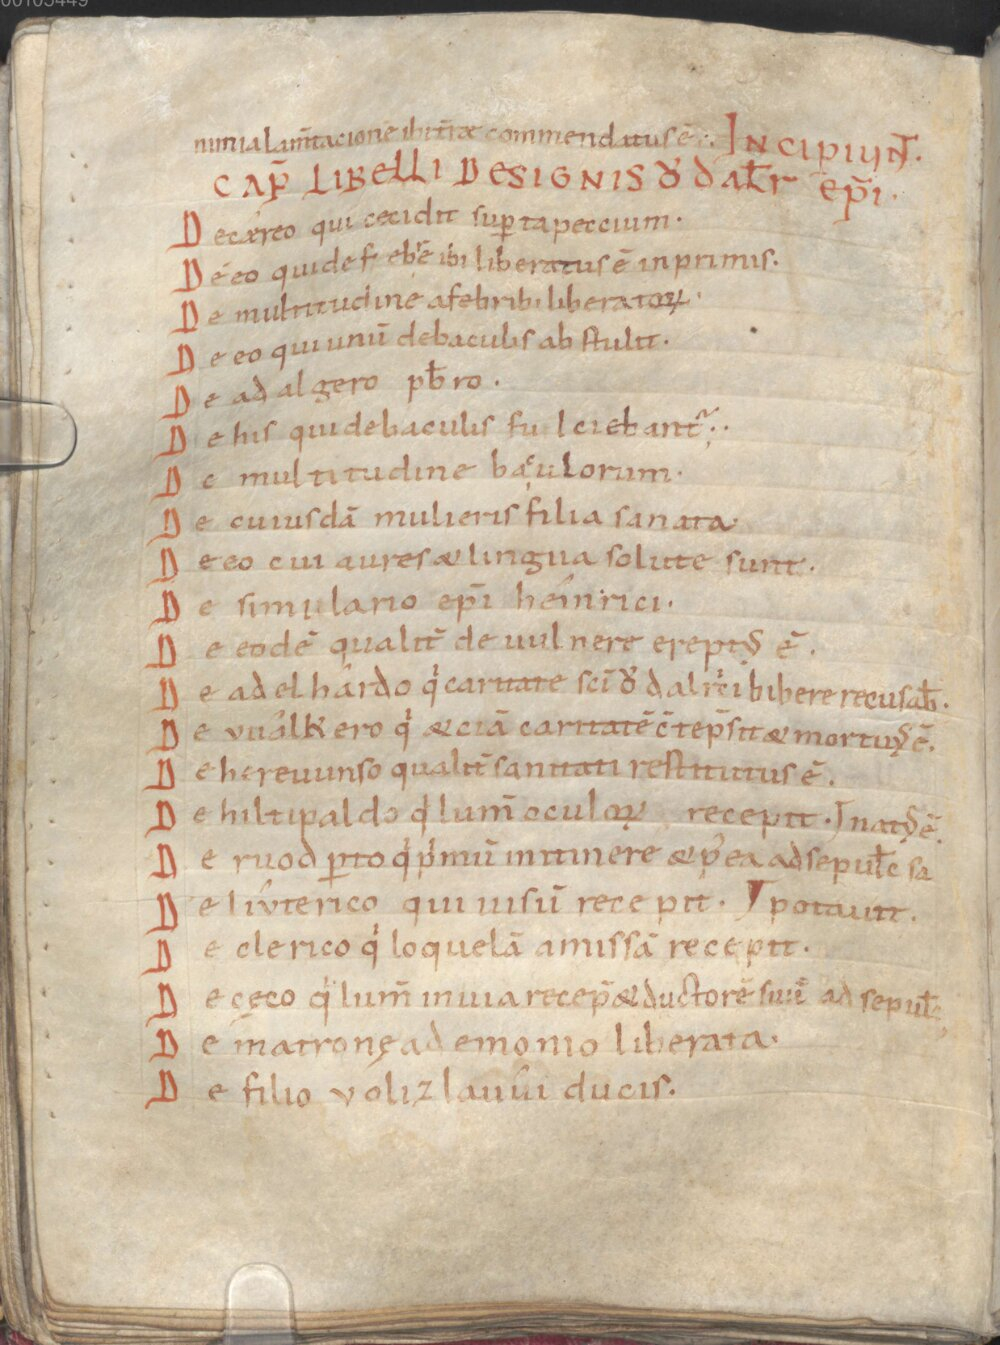 00105449
nimia lam̄tacione ibi t̄rae commendatus ē. INCIPIUN̄T.
CAP̄ LIBELLI DE SIGNIS ỠDALR̄ EP̄I.
De cereo qui cecidit sup tapeccium.
De eo qui de febrē ibi liberatus ē inprimis.
De multitudine a febribus liberatoꝝ.
De eo qui unū de baculis abstulit.
De adalgero pƀro.
De his qui de baculis fulciebant̃.
De multitudine baculorum.
De cuiusdā mulieris filia sanata.
De eo cui aures & lingua solute sunt.
De simulario ep̄i heinrici.
De eodē qualit̄ de uulnere erept᷒ ē.
De adelhardo q̍ caritate sc̄i ỡdalrici bibere recusaƀ.
De vuálkero q̍ &ciā caritatē c̄tēpsit & mortu᷒ ē.
De herevunso qualit̄ sanitati restitutus ē.
De hiltipaldo q̍ lum̄ oculoꝝ recepit. Inat᷒ ē.
De ruodperto q̍ p̍mū in itinere & p᷒ea ad sepulc̄ sa
De liúterico qui uisū recepit. potauit.
De clerico q̍ loquelā amissā recepit.
De cęco q̍ lum̄ in uia recep̄ & ductorē suū ad sepulc̄
De matronę a demonio liberata.
De filio vólizlauúi ducis.